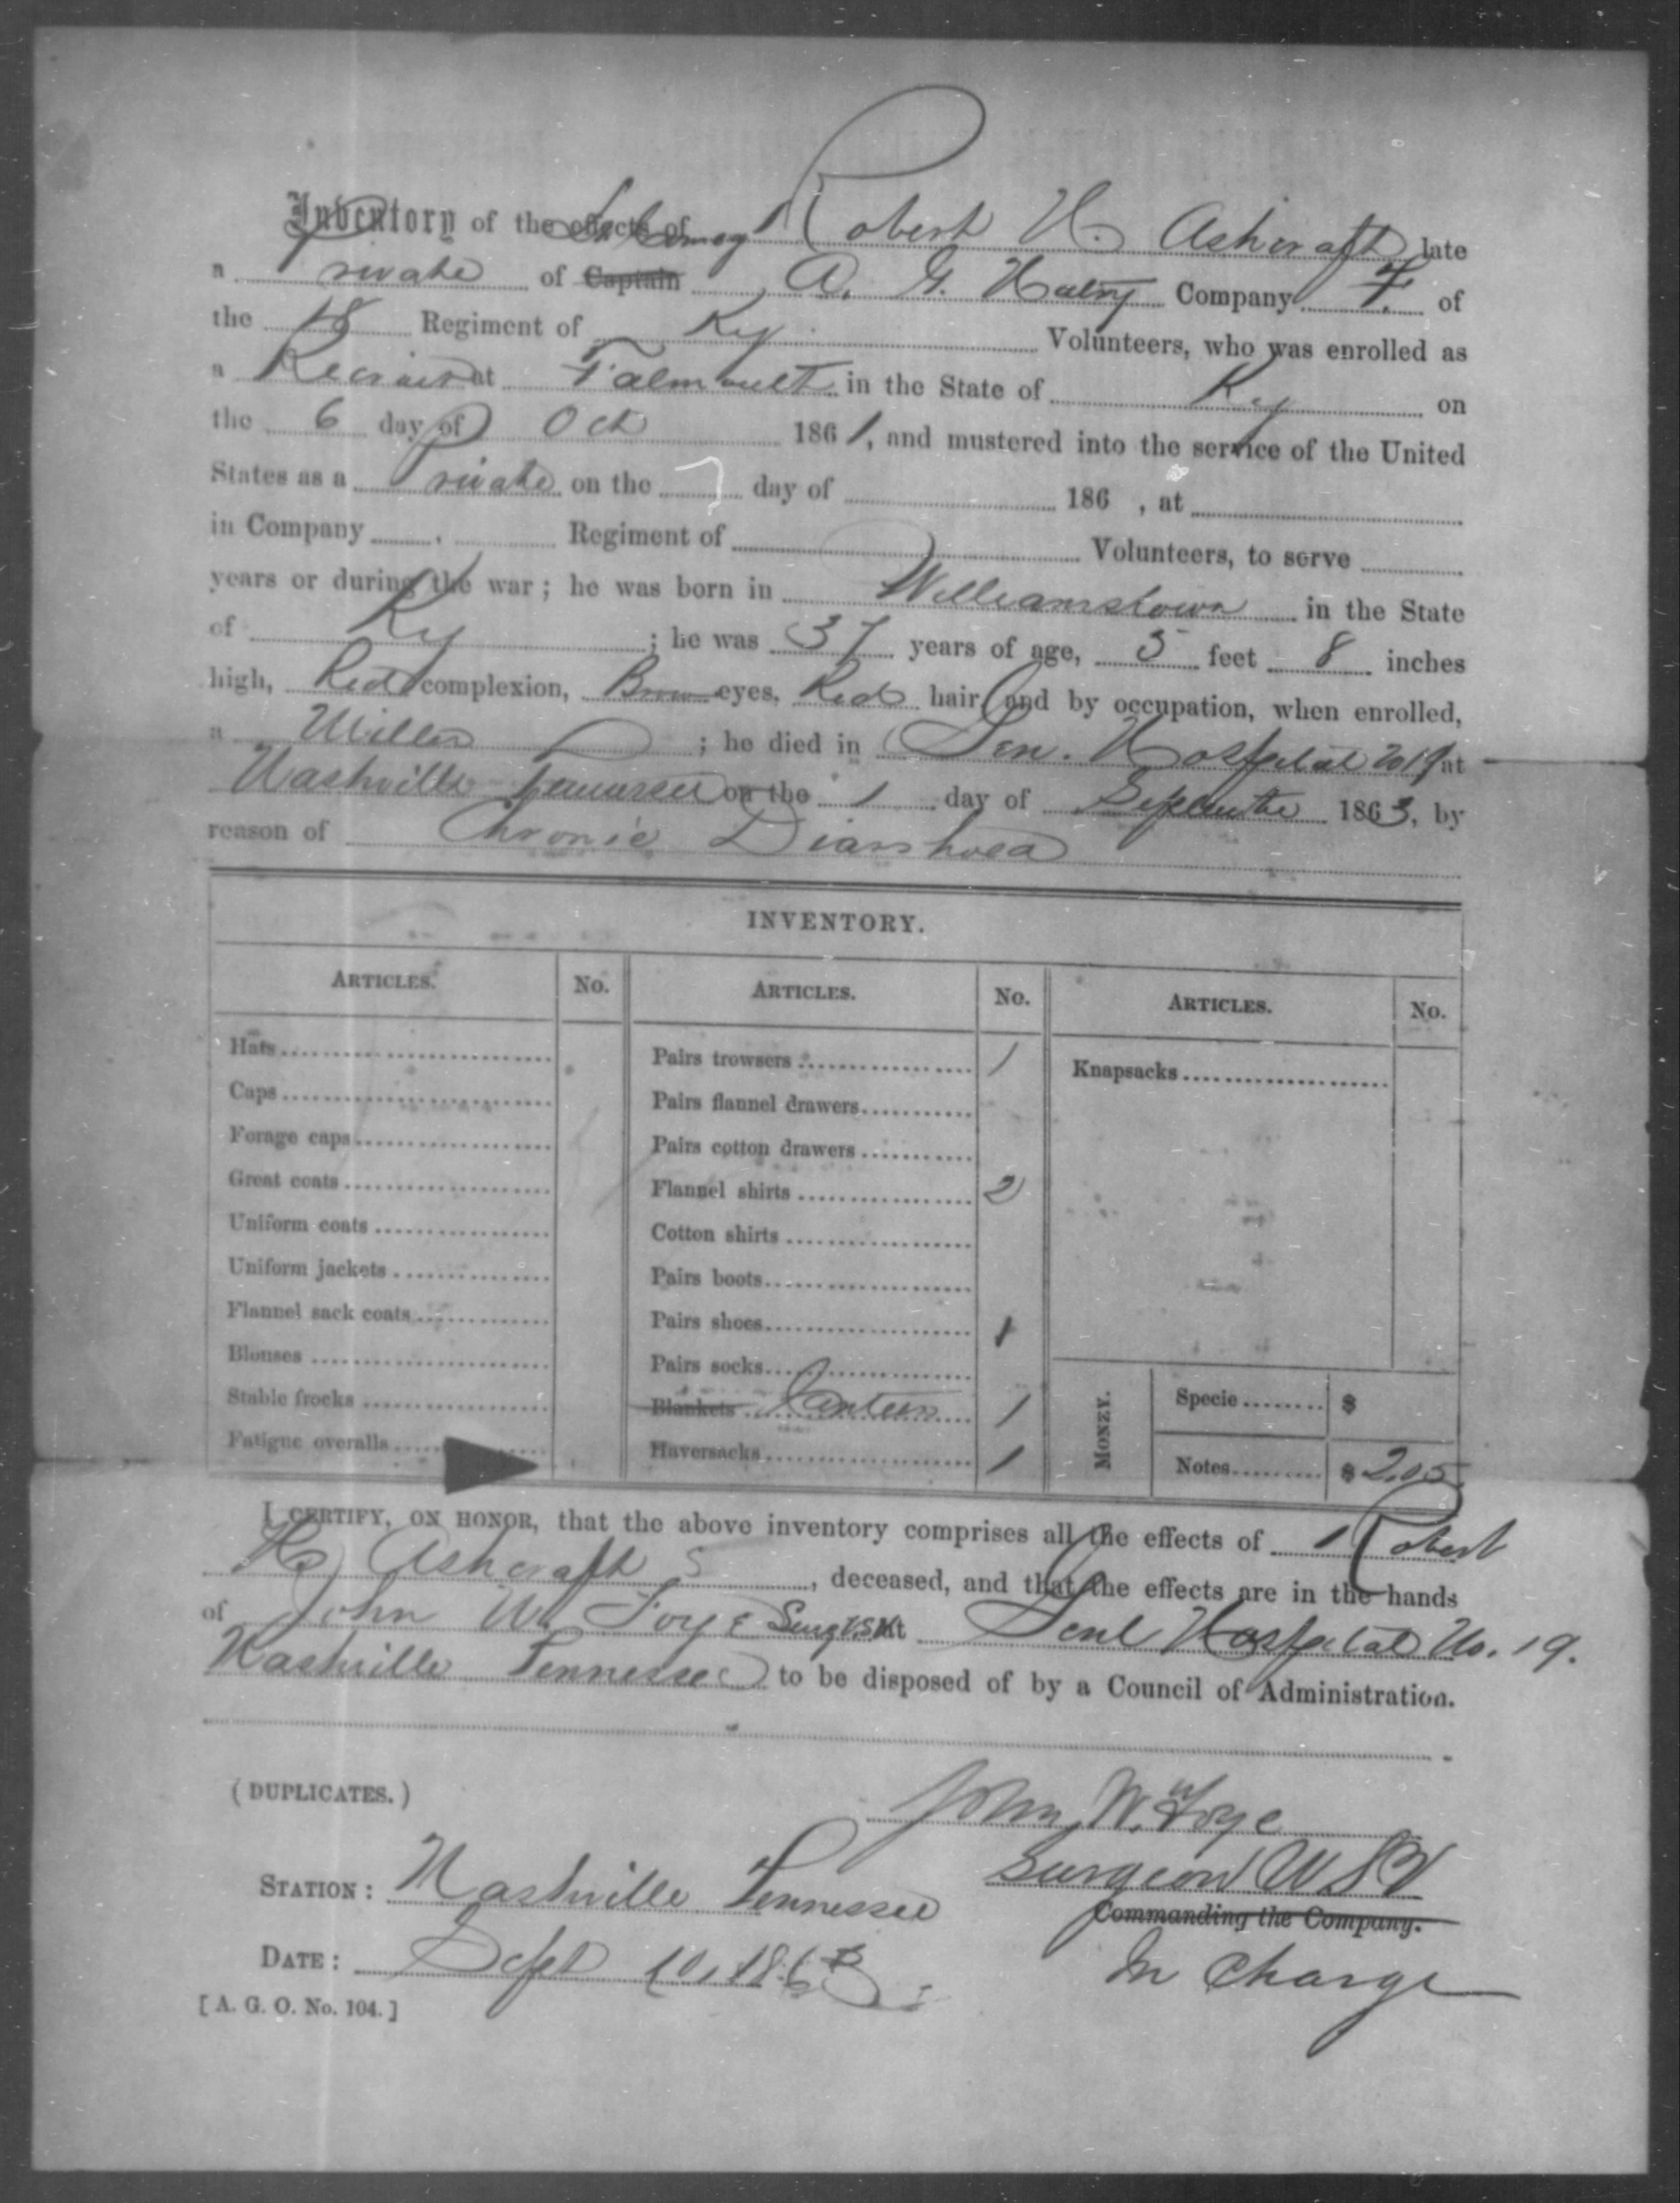 Inventory of the effects of Robert H. Ashcraft late
a Private of Captain A. G. Company F. of
the 18 Regiment of Ky. Volunteers, who was enrolled as
a at Falmouth in the State of Ky on
the 6 day of Oct 1861, and mustered into the service of the United
States as a Private on the day of 186 , at
in Company Regiment of Volunteers, to serve
years or during the war; he was born in Williamstown in the State
of Ky ; he was 37 years of age, 5 feet 8 inches
high, Red complexion, eyes, Red hair, and by occupation, when enrolled,
a Miller ; he died in Gen. Hospital No 19 at
Nashville Tennessee on the 1 day of 1863, by
reason of Chronic Diarrhoea
INVENTORY.
ARTICLES. No. ARTICLES. No. ARTICLES. No.
Hats Pairs trowsers 1 Knapsacks
Caps Pairs flannel drawers
Forage caps Pairs cotton drawers
Great coats Flannel shirts 2
Uniform coats Cotton shirts
Uniform jackets Pairs boots
Flannel sack coats Pairs shoes 1
Blouses Pairs socks
Stable frocks Blankets Canteen 1 MONEY. Specie $
Fatigue overalls Haversacks 1 Notes $ 2.05
I CERTIFY, ON HONOR, that the above inventory comprises all the effects of Robert
H. Ashcraft , deceased, and that the effects are in the hands
of John W. Foye Surg U.S.V. at Genl Hospital No. 19.
Nashville Tennessee to be disposed of by a Council of Administration.
(DUPLICATES.)
John W. Foye
Surgeon U S V
STATION: Nashville Tennessee
Commanding the Company.
DATE: Sept 10, 1863
In Charge
[A. G. O. No. 104.]